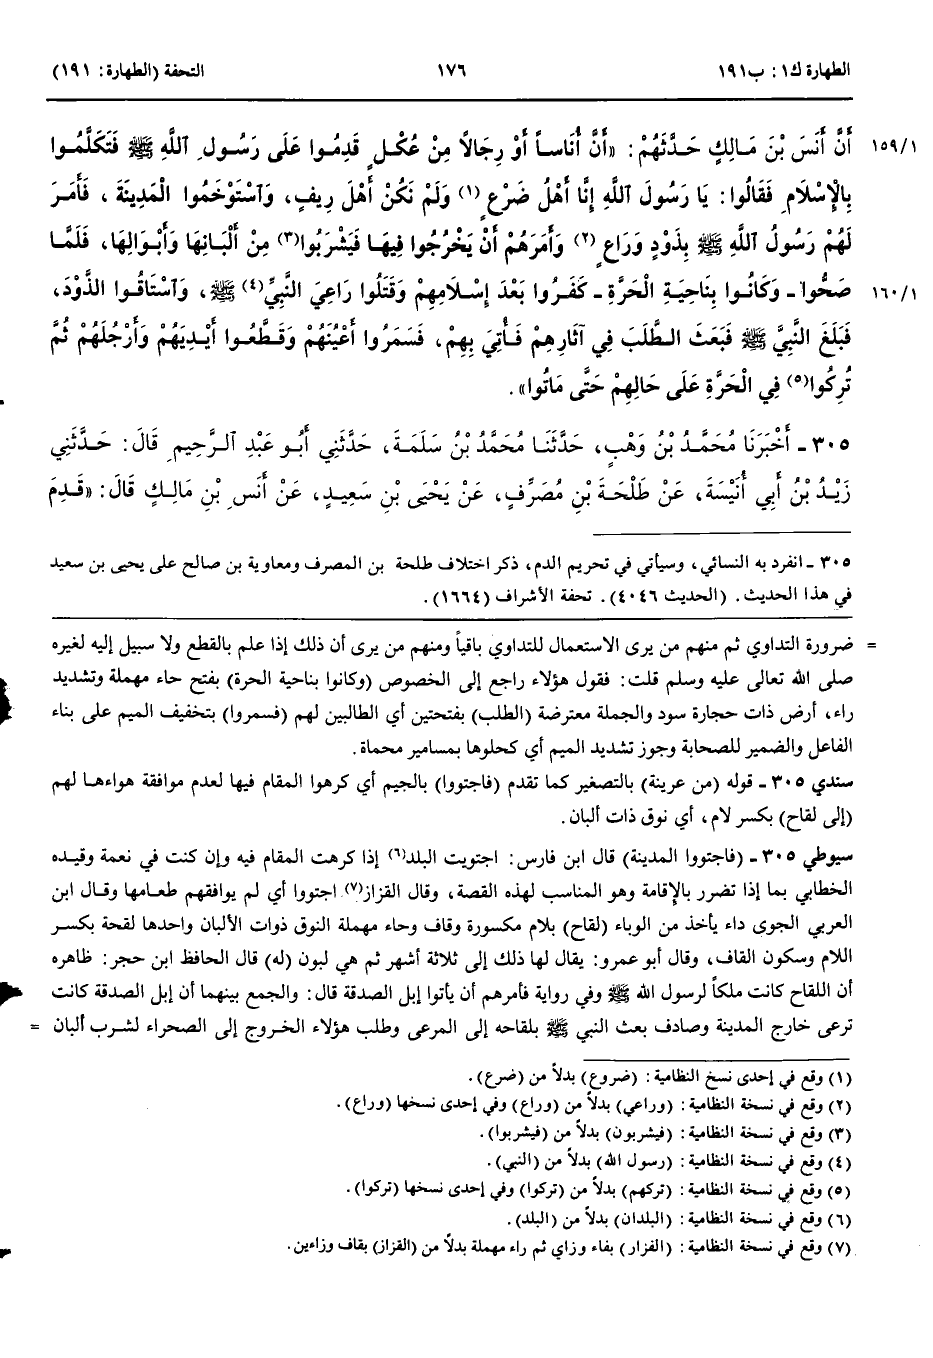 الطهارة ك١: ب١٩١
١٧٦
التحفة (الطهارة: ١٩١)
١٥٩/١ أَنَّ أَنَسَ بْنَ مَالِكٍ حَدَّثَهُمْ: «أَنَّ أُنَاساً أَوْ رِجَالاً مِنْ عُكْلٍ قَدِمُوا عَلَى رَسُولِ ٱللَّهِ ﷺ فَتَكَلَّمُوا
بِالْإِسْلَامِ فَقَالُوا: يَا رَسُولَ ٱللَّهِ إِنَّا أَهْلُ ضَرْعٍ (١) وَلَمْ نَكُنْ أَهْلَ رِيفٍ، وَٱسْتَوْخَمُوا الْمَدِينَةَ، فَأَمَرَ
لَهُمْ رَسُولُ ٱللَّهِ ﷺ بِذَوْدٍ وَرَاعٍ (٢) وَأَمَرَهُمْ أَنْ يَخْرُجُوا فِيهَا فَيَشْرَبُوا(٣) مِنْ أَلْبَانِهَا وَأَبْوَالِهَا، فَلَمَّا
١٦٠/١ صَحُّوا - وَكَانُوا بِنَاحِيَةِ الْحَرَّةِ - كَفَرُوا بَعْدَ إِسْلَامِهِمْ وَقَتَلُوا رَاعِيَ النَّبِيِّ(٤) ﷺ، وَٱسْتَاقُوا الذَّوْدَ،
فَبَلَغَ النَّبِيَّ ﷺ فَبَعَثَ الطَّلَبَ فِي آثَارِهِمْ فَأُتِيَ بِهِمْ، فَسَمَرُوا أَعْيُنَهُمْ وَقَطَّعُوا أَيْدِيَهُمْ وَأَرْجُلَهُمْ ثُمَّ
تُرِكُوا(٥) فِي الْحَرَّةِ عَلَى حَالِهِمْ حَتَّى مَاتُوا».
٣٠٥ - أَخْبَرَنَا مُحَمَّدُ بْنُ وَهْبٍ، حَدَّثَنَا مُحَمَّدُ بْنُ سَلَمَةَ، حَدَّثَنِي أَبُو عَبْدِ ٱلرَّحِيمِ قَالَ: حَدَّثَنِي
زَيْدُ بْنُ أَبِي أُنَيْسَةَ، عَنْ طَلْحَةَ بْنِ مُصَرِّفٍ، عَنْ يَحْيَى بْنِ سَعِيدٍ، عَنْ أَنَسِ بْنِ مَالِكٍ قَالَ: «قَدِمَ
٣٠٥ - انفرد به النسائي، وسيأتي في تحريم الدم، ذكر اختلاف طلحة بن المصرف ومعاوية بن صالح على يحيى بن سعيد
في هذا الحديث. (الحديث ٤٠٤٦). تحفة الأشراف (١٦٦٤).
= ضرورة التداوي ثم منهم من يرى الاستعمال للتداوي باقياً ومنهم من يرى أن ذلك إذا علم بالقطع ولا سبيل إليه لغيره
صلى الله تعالى عليه وسلم قلت: فقول هؤلاء راجع إلى الخصوص (وكانوا بناحية الحرة) بفتح حاء مهملة وتشديد
راء، أرض ذات حجارة سود والجملة معترضة (الطلب) بفتحتين أي الطالبين لهم (فسمروا) بتخفيف الميم على بناء
الفاعل والضمير للصحابة وجوز تشديد الميم أي كحلوها بمسامير محماة.
سندي ٣٠٥ - قوله (من عرينة) بالتصغير كما تقدم (فاجتووا) بالجيم أي كرهوا المقام فيها لعدم موافقة هواءها لهم
(إلى لقاح) بكسر لام، أي نوق ذات ألبان.
سيوطي ٣٠٥ - (فاجتووا المدينة) قال ابن فارس: اجتويت البلد(٦) إذا كرهت المقام فيه وإن كنت في نعمة وقيده
الخطابي بما إذا تضرر بالإقامة وهو المناسب لهذه القصة، وقال القزاز(٧) اجتووا أي لم يوافقهم طعامها وقال ابن
العربي الجوى داء يأخذ من الوباء (لقاح) بلام مكسورة وقاف وحاء مهملة النوق ذوات الألبان واحدها لقحة بكسر
اللام وسكون القاف، وقال أبو عمرو: يقال لها ذلك إلى ثلاثة أشهر ثم هي لبون (له) قال الحافظ ابن حجر: ظاهره
أن اللقاح كانت ملكاً لرسول الله ﷺ وفي رواية فأمرهم أن يأتوا إبل الصدقة قال: والجمع بينهما أن إبل الصدقة كانت
ترعى خارج المدينة وصادف بعث النبي ﷺ بلقاحه إلى المرعى وطلب هؤلاء الخروج إلى الصحراء لشرب ألبان =
(١) وقع في إحدى نسخ النظامية: (ضروع) بدلاً من (ضرع).
(٢) وقع في نسخة النظامية: (وراعي) بدلاً من (وراع) وفي إحدى نسخها (وراع).
(٣) وقع في نسخة النظامية: (فيشربون) بدلاً من (فيشربوا).
(٤) وقع في نسخة النظامية: (رسول الله) بدلاً من (النبي).
(٥) وقع في نسخة النظامية: (تركهم) بدلاً من (تركوا) وفي إحدى نسخها (تركوا).
(٦) وقع في نسخة النظامية: (البلدان) بدلاً من (البلد).
(٧) وقع في نسخة النظامية: (الفزار) بفاء وزاي ثم راء مهملة بدلاً من (القزاز) بقاف وزاءين.